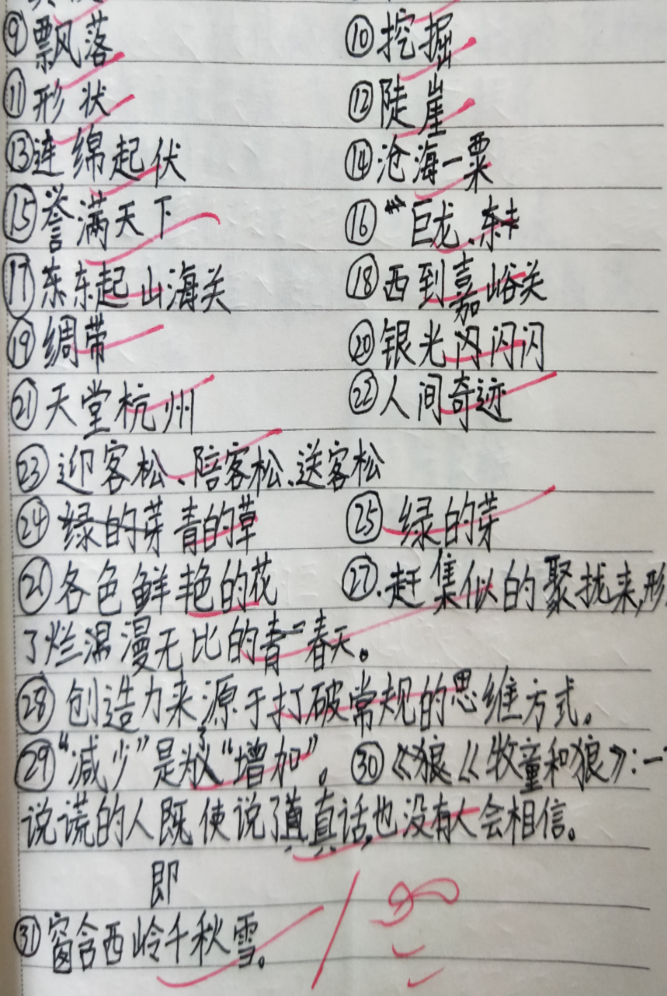 ⑨飘风落 ⑩挖掘
⑪形状 ⑫陡崖
⑬连绵起伏 ⑭沧海一粟
⑮誉满天下 ⑯巨龙、
⑰东起山海关 ⑱西到嘉峪关
⑲绸带 ⑳银光闪闪
㉑天堂杭州 ㉒人间奇迹
㉓迎客松、陪客松、送客松
㉔青的草 ㉕绿的芽
㉖各色鲜艳的花 ㉗赶集似的聚拢来,形
了烂漫无比的春天。
㉘创造力来源于打破常规的思维方式。
㉙“减少”是为了“增加”。 ㉚《牧童和狼》:一
说谎的人既使说了真话,也没有人会相信。
即
㉛窗含西岭千秋雪。